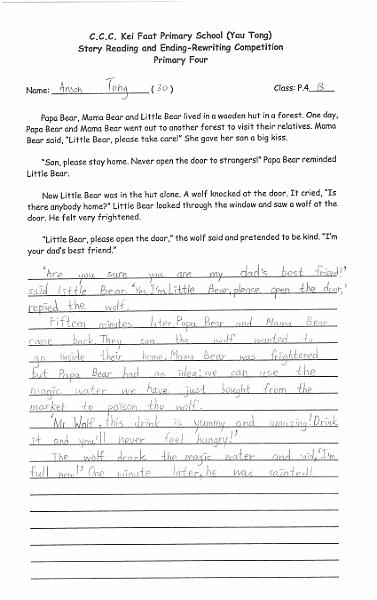 C.C.C. Kei Faat Primary School (Yau Tong)
Story Reading and Ending-Rewriting Competition
Primary Four
Name: Anson Tong (30) Class: P.4 B
Papa Bear, Mama Bear and Little Bear lived in a wooden hut in a forest. One day,
Papa Bear and Mama Bear went out to another forest to visit their relatives. Mama
Bear said, "Little Bear, please take care!" She gave her son a big kiss.
"Son, please stay home. Never open the door to strangers!" Papa Bear reminded
Little Bear.
Now Little Bear was in the hut alone. A wolf knocked at the door. It cried, "Is
there anybody home?" Little Bear looked through the window and saw a wolf at the
door. He felt very frightened.
"Little Bear, please open the door," the wolf said and pretended to be kind. "I'm
your dad's best friend."
'Are you sure you are my dad's best friend?'
said Little Bear. 'Yes, I'm Little Bear, please open the door,'
repied the wolf.
Fifteen minites later, Papa Bear and Mama Bear
came back. They saw the wolf wanted to
go inside their home. Mama Bear was frightened
but Papa Bear had an idea: we can use the
magic water we have just bought from the
market to poison the wolf.
'Mr Wolf, this drink is yummy and amazing! Drink
it and you'll never feel hungry!'
The wolf drank the magic water and said, 'I'm
full now!' One minute later, he was sainted!